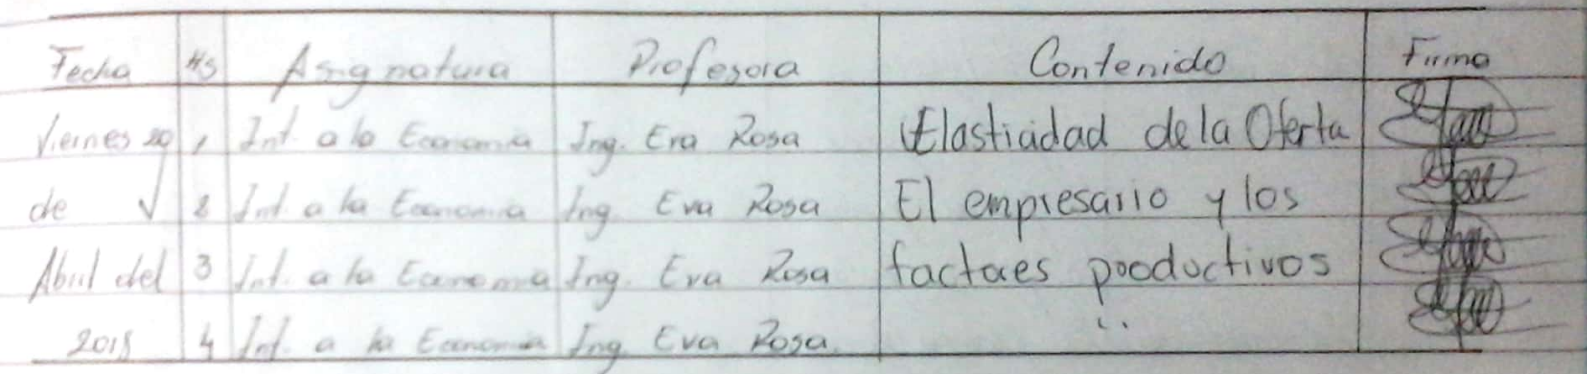 Fecha Hs Asignatura Profesora Contenido Firma
Viernes 20 1 Int. a la Economia Ing. Eva Rosa Elasticidad de la Oferta
de √ 2 Int. a la Economia Ing. Eva Rosa El empresario y los
Abril del 3 Int. a la Economia Ing. Eva Rosa factores pooductivos
2018 4 Int. a la Economia Ing. Eva Rosa. ..